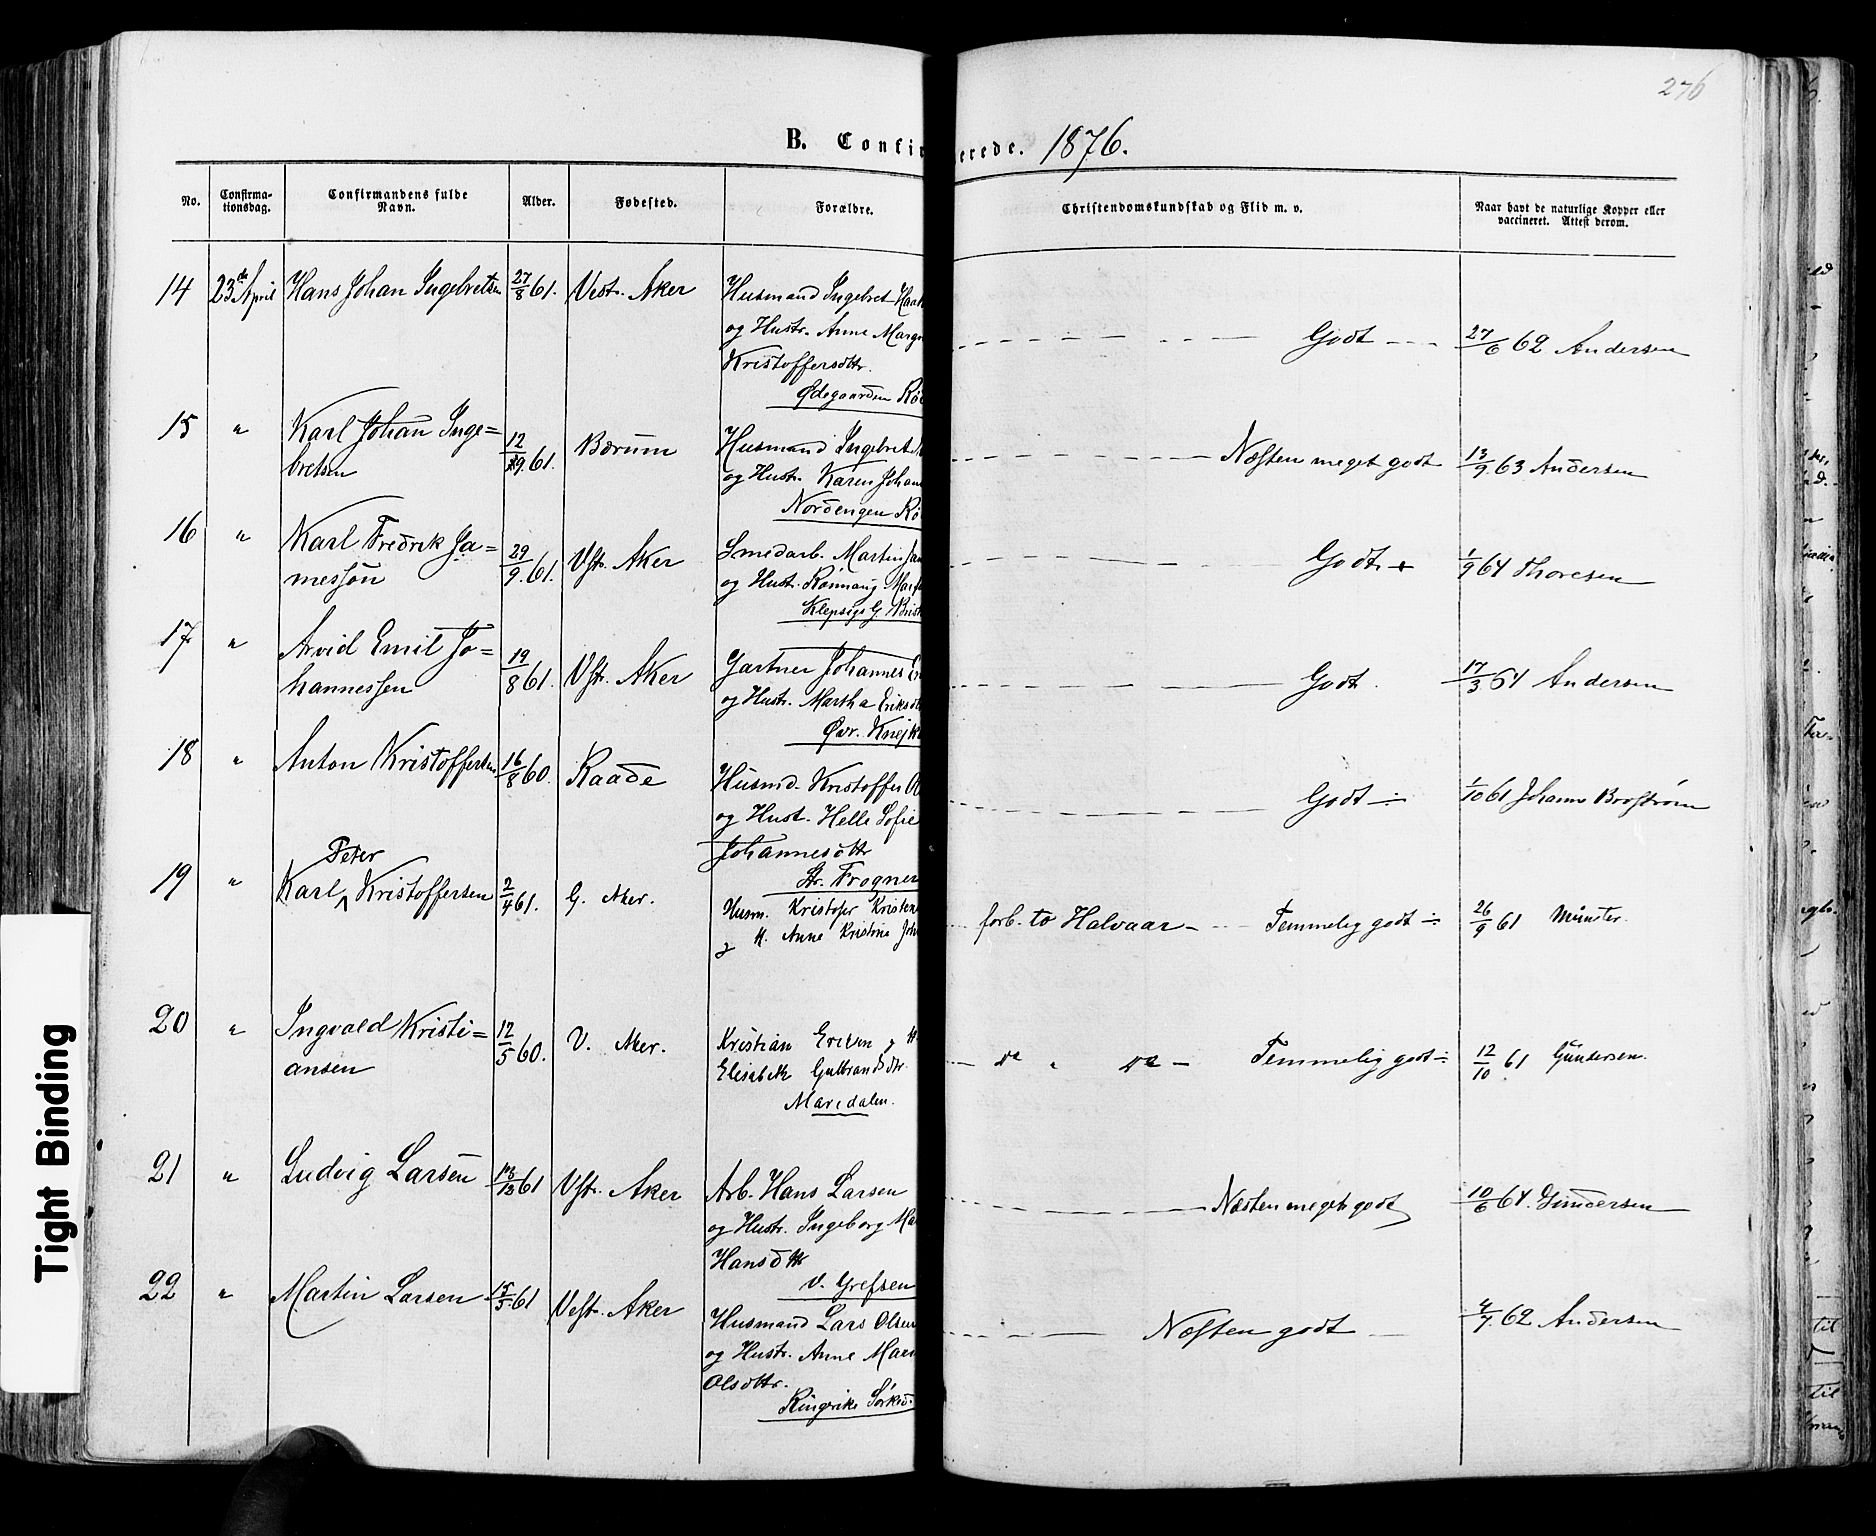 276
B. Confir erede. 1876.
No.
Confirma-
tionsdag.
Confirmandens fulde
Navn.
Alder.
Fødested.
Forældre.
Christendomskundskab og Flid m. v.
Naar havt de naturlige Kopper eller
vaccineret. Attest derom.
14 23de April Hans Johan Ingebretsen 27/8 61. Vest. Aker Husmand Ingebret
og Hustr. Anne
Kristoffersdttr.
Ødegaarden
Godt 27/6 62 Andersen
15 " Karl Johan Inge=
bretsen
12/9. 61. Bærum Husmand Ingebret
og Hustr. Karen
Nordengen
Næsten meget godt 13/9. 63 Andersen
16 " Karl Fredrik Ja=
messøn
29/9. 61. Vstr. Aker Smedarb. Martin
og Hustr.
Godt + 1/9 64 Thoresen
17 " Arvid Emil Jo=
hannessen
19/8 61. Vstr. Aker Gartner Johannes
og Hustr. Martha
Øvr.
Godt. 17/3 64 Andersen
18 " Anton Kristoffersen 16/8 60. Raade Husmd. Kristoffer
og Hust. Helle Sofie
Johannesdttr
Str. Frogner
Godt ÷ 1/10 61 Johann
19 " Peter
Karl ^ Kristoffersen 2/4 61. G. Aker. Husm. Kristofer
og H. Anne Kristine
forb. to Halvaar Temmelig godt ÷ 26/9 61 Münster.
20 " Ingvald Kristi=
ansen
12/5 60. V. Aker. Kristian og H
Elisabeth Gulbrandsdtr.
Maridalen.
do " do Temmelig godt ÷ 12/10 61 Gundersen.
21 " Ludvig Larsen 61 Vstr. Aker Arb. Hans Larsen
og Hustr. Ingeborg
Hansdttr
V. Grefsen
Næsten meget godt 10/6 64. Gundersen
22 " Martin Larsen 15/5. 61 Vestr. Aker Husmand Lars Olsen
og Hustr. Anne
Olsdttr.
Ringerike
Næsten godt 4/7. 62 Andersen
til
til
Tight Binding